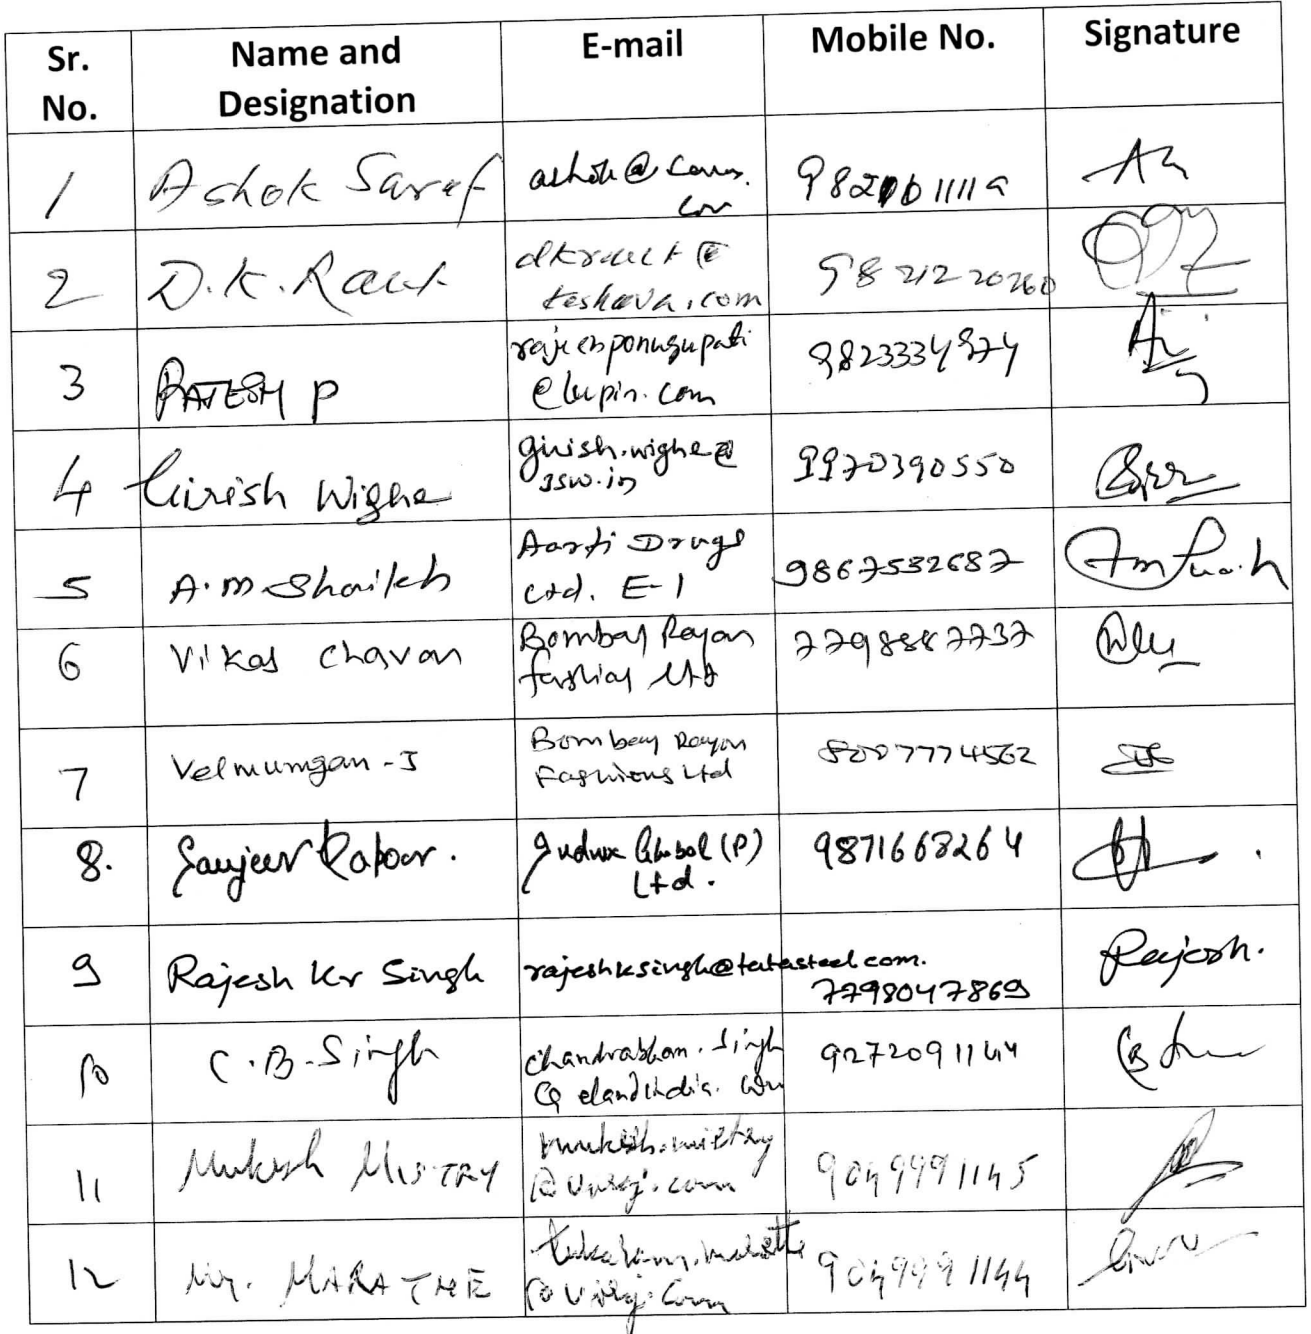 Sr. No.
Name and Designation
E-mail
Mobile No.
Signature
1
Ashok Saraf
2
D.K. Raut
dkraut@
teskova.com
9821220260
3
RAJESH P
rajeshponugupati
@lupin.com
9823334974
4
Girish Wighe
girish.wighe@
jsw.in
9970390550
5
A.M Shaikh
Aarti Drugs
Ltd. E-1
9867532687
6
Vikas Chavan
Bombay Rayon
Fashion Ltd
7798887737
7
Velmurugan-J
Bombay Rayon
Fashions Ltd
8007774562
8.
Sanjeev Kapoor.
Global (P)
Ltd.
9871668264
9
Rajesh Kr Singh
rajeshksingh@tatasteel.com.
7798047869
Rajesh.
10
C.B. Singh
chandrabhan.singh
@elandindia.com
9272091144
11
Mukesh MISTRY
mukesh.mistry
@uniraj.com
9049991145
12
Mr. MARATHE
9049991144